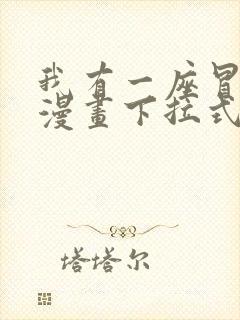 我有一座冒
漫畫下拉式
塔塔尔